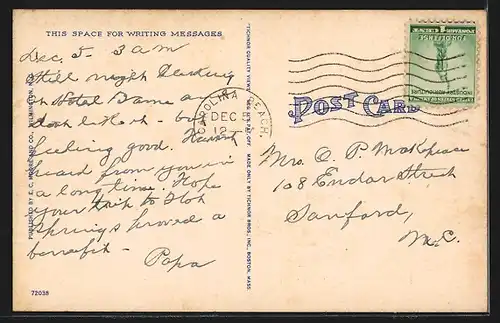 THIS SPACE FOR WRITING MESSAGES
Dec. 5- 3 am
Still night Clerking
on Hotel Dame and
don't like it - but
feeling good. Haven't
heard from you in
a long time. Hope
your trip to Hot
Springs proved a
benefit -
Papa
72038
PUBLISHED BY E. C. MOORE AND CO., WILMINGTON, N. C.
"TICHNOR QUALITY VIEWS" REG. U. S. PAT. OFF. MADE ONLY BY TICHNOR BROS., INC., BOSTON, MASS.
CAROLINA BEACH,
DEC
12
POST CARD
INDUSTRY AGRICULTURE
FOR DEFENSE
1
Mrs. O. P. Makepeace
108 Endor Street
Sanford,
N.C.